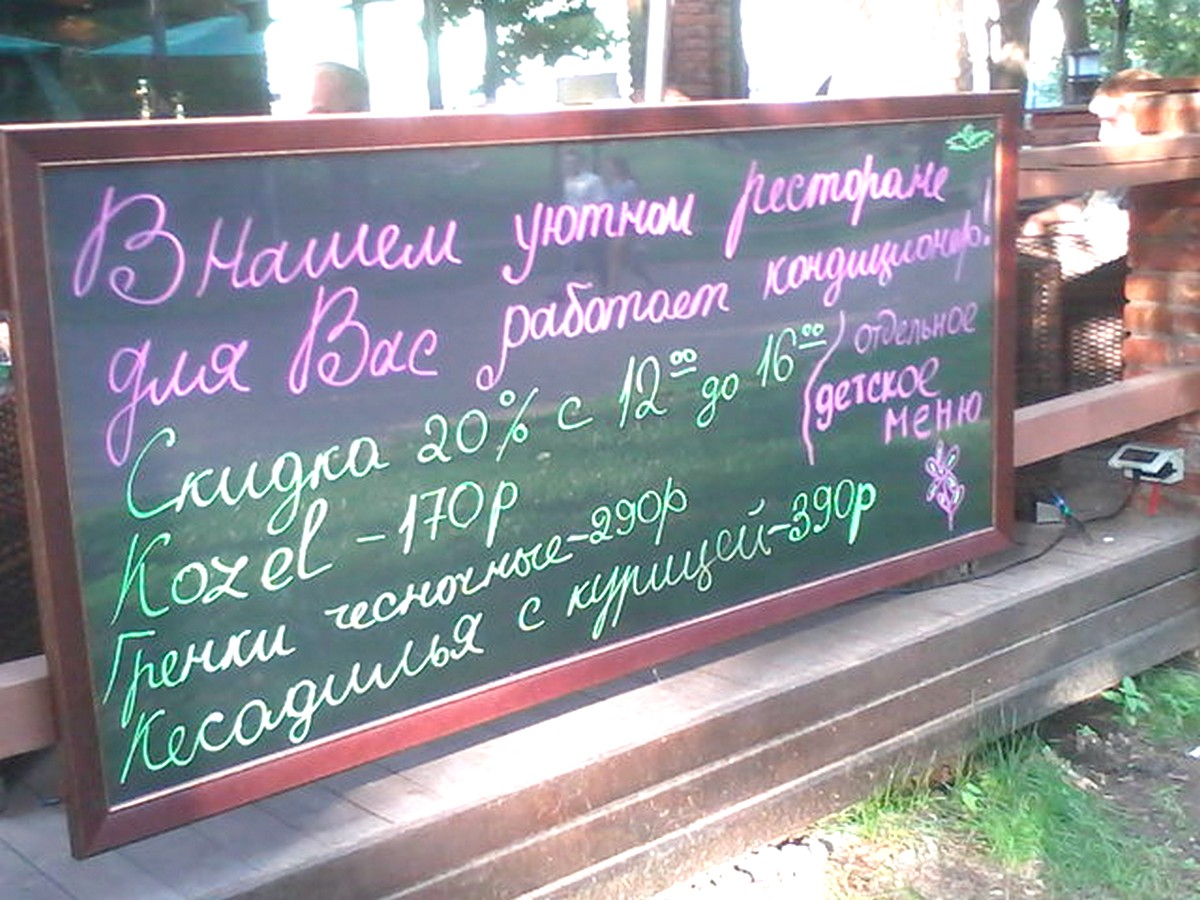 В Нашем уютном ресторане
для Вас работает кондиционер!
Скидка 20% с 12⁰⁰ до 16⁰⁰
отдельное
детское
меню
Kozel - 170р
Гренки чесночные - 290р
Кесадилья с курицей - 390р